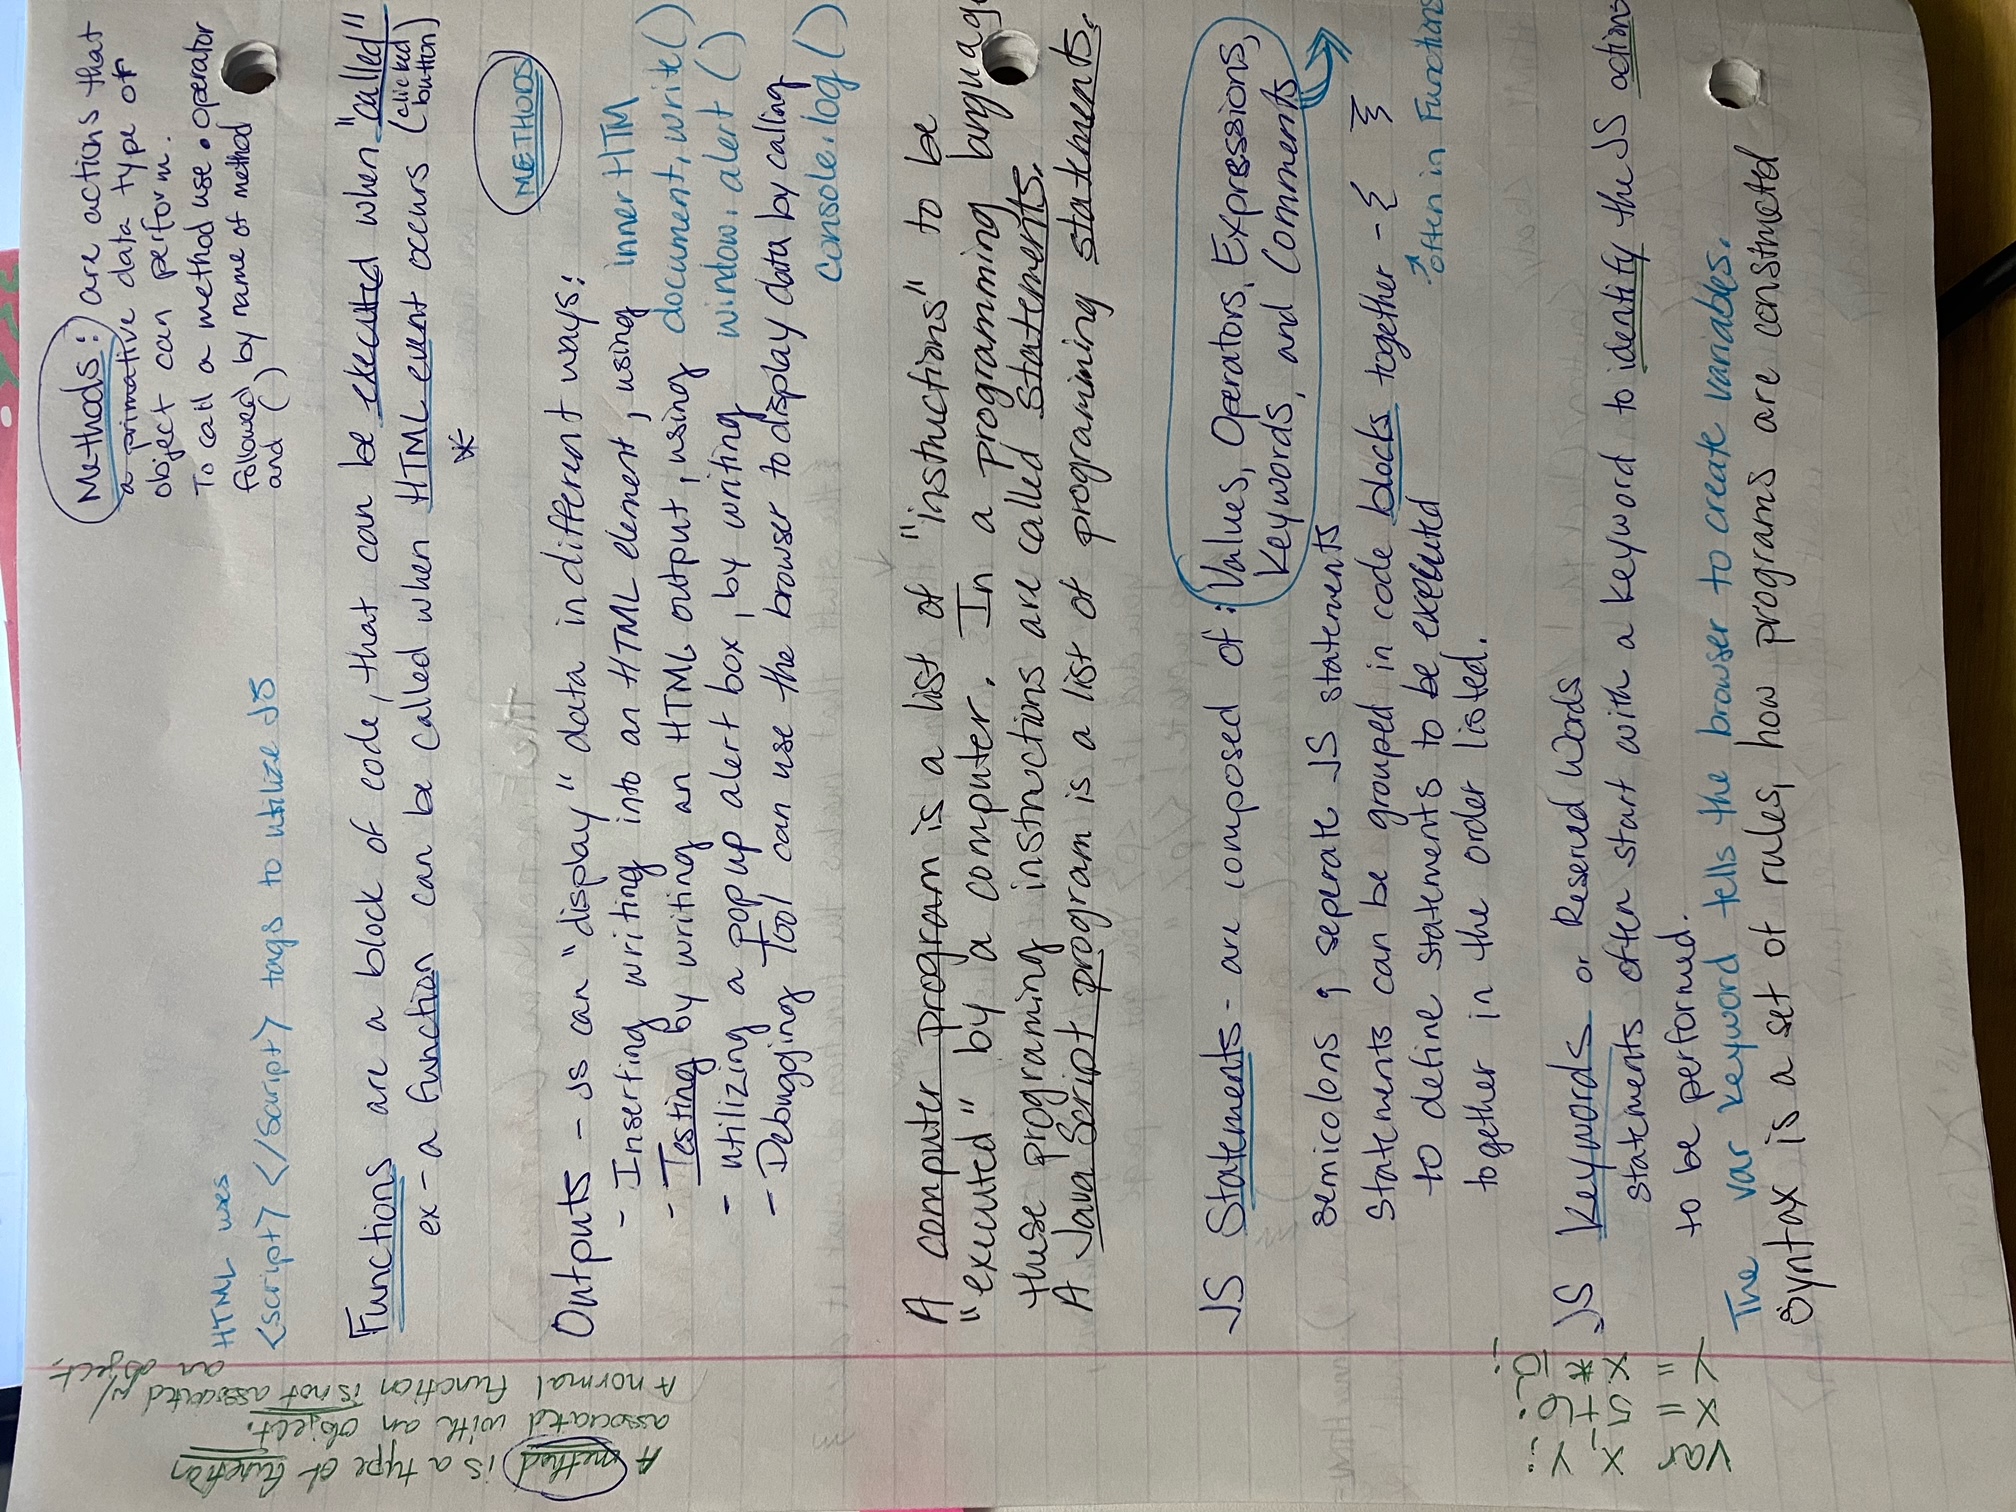 Methods: are actions that
a primative data type or
object can perform.
To call a method use . operator
followed by name of method
and ( )
HTML uses
<script> </Script> tags to utilize JS
Functions are a block of code, that can be executed when "called"
ex - a function can be called when HTML event occurs (clicked
button)
*
METHODS
Outputs - JS can "display" data in different ways:
- Inserting writing into an HTML element, using inner HTM
- Testing by writing an HTML output, using document.write()
- utilizing a pop up alert box, by writing window.alert ()
- Debugging Tool can use the browser to display data by calling
console.log()
A computer program is a list of "instructions" to be
"executed" by a computer. In a programming language
these programing instructions are called statements.
A Java Script program is a list of programming statements.
JS Statements - are composed of: Values, Operators, Expressions,
Keywords, and Comments
semicolons ; seperate JS statements
Statements can be grouped in code blocks together - { }
to define statements to be executed
often in Functions
together in the order listed.
JS Keywords or Reserved Words
statements often start with a keyword to identify the JS actions
to be performed.
The var keyword tells the browser to create variables.
Syntax is a set of rules, how programs are constructed
A method is a type of function
associated with an object.
A normal function is not associated w/
an object.
var x, y;
x = 5+6;
y = x * 10;